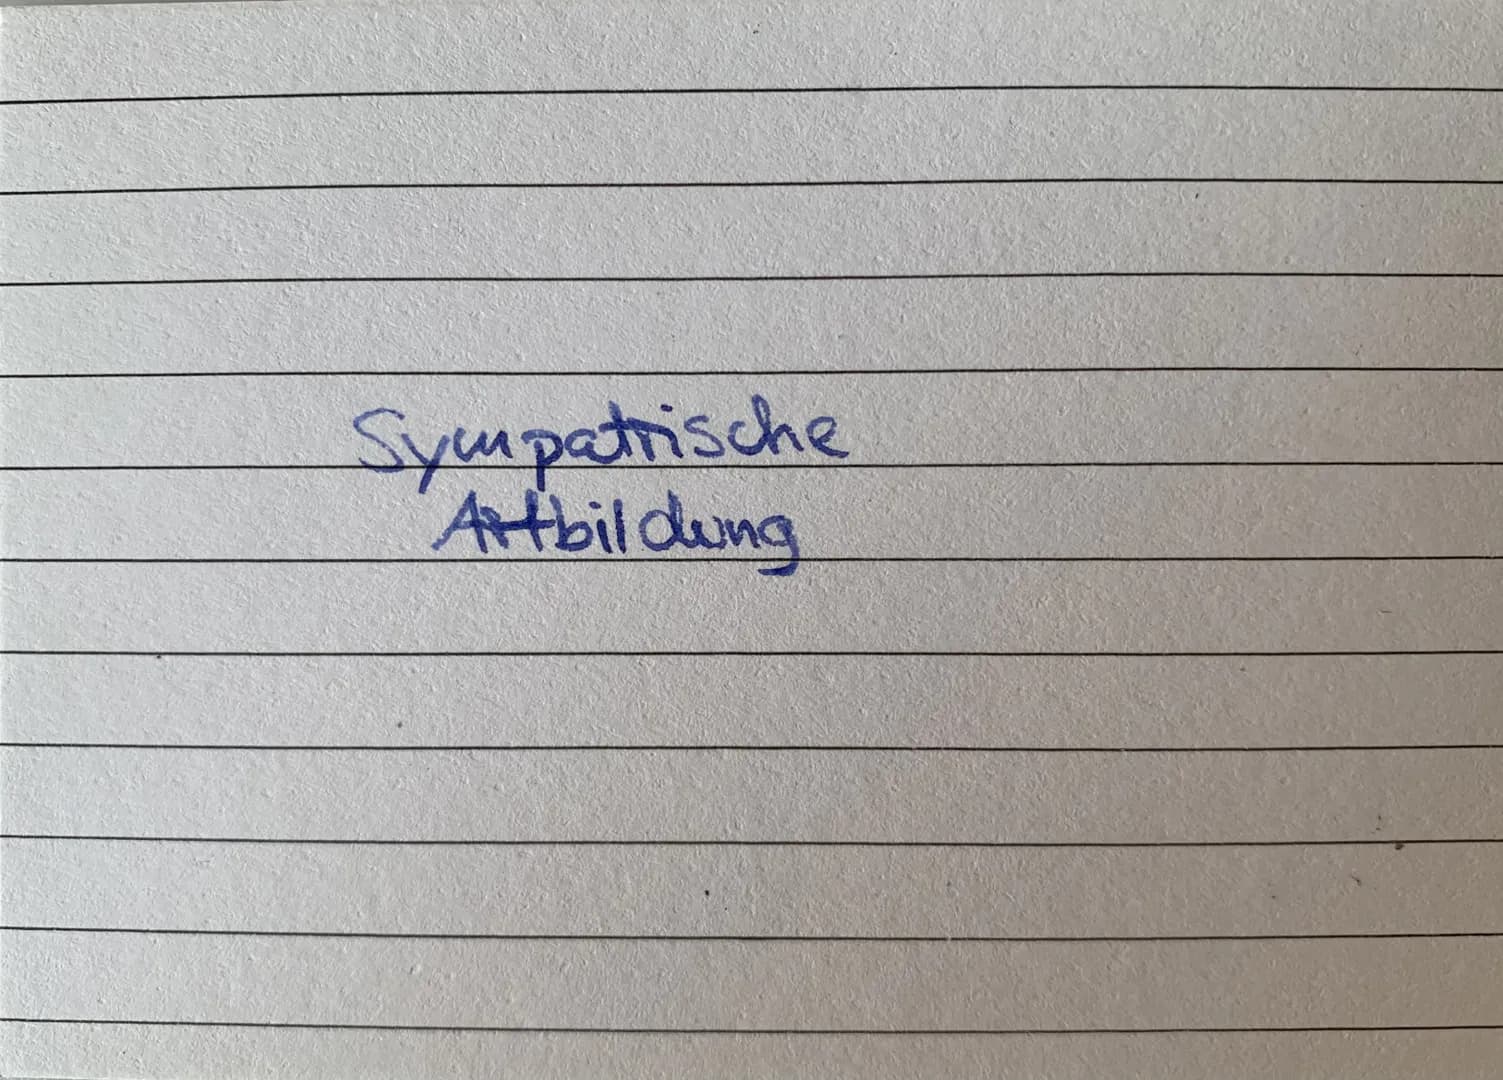 Sympatrische
Artbildung